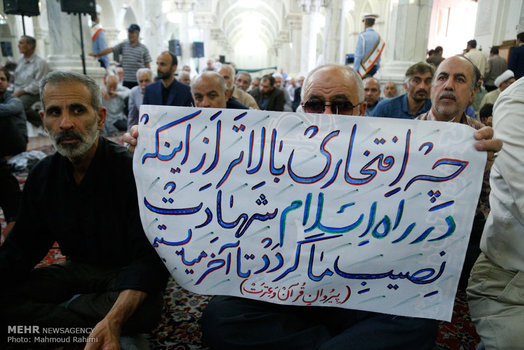 چه افتخاری بالاتر از اینکه
در راه اسلام شهادت
نصیب ما گردد تا آخر میدیستیم
(پیروان قرآن و عترت)
MEHR NEWSAGENCY
Photo: Mahmoud Rahimi